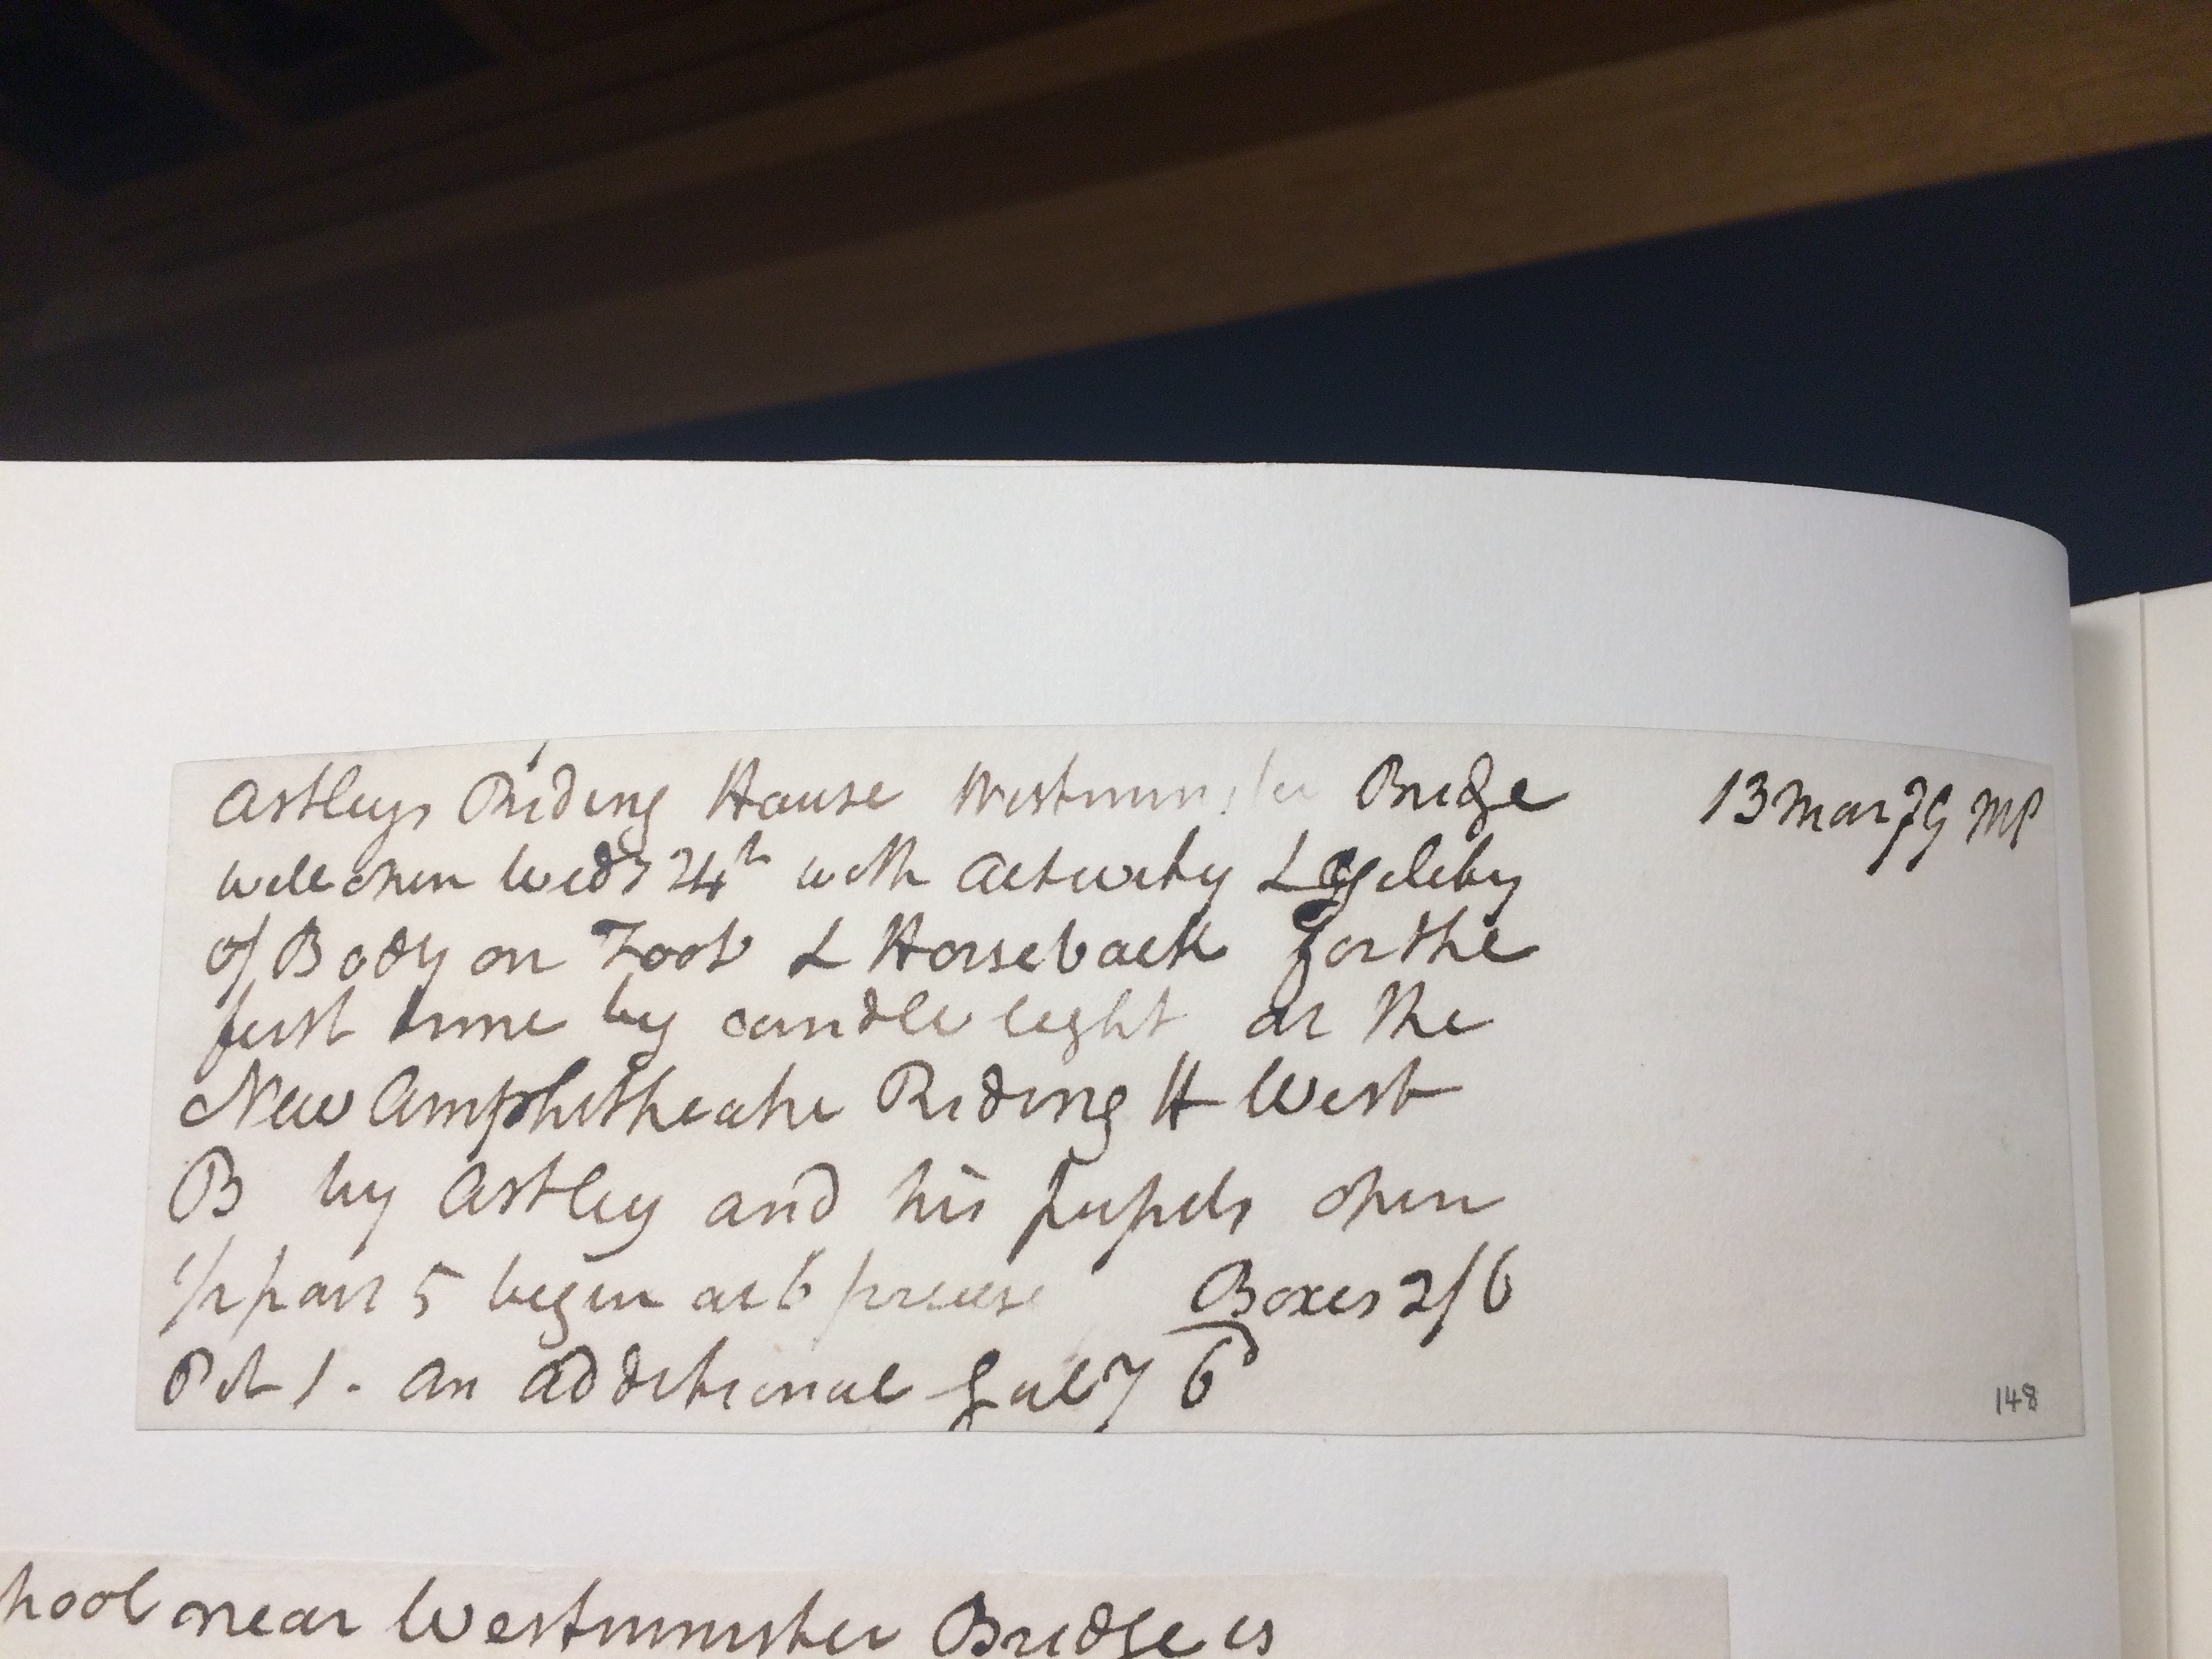 Astleys Riding House Westminster Bridge 13 Mar 79 MP
will open Weds 24th with Activity & Agility
of Body on Foot & Horseback for the
first time by candle light at the
New Amphitheatre Riding H West
B by Astley and his pupils open
1/2 past 5 begin at 6 precise Boxes 2/6
Pit 1 - an additional Gally 6d
148
hool near Westminster Bridge is